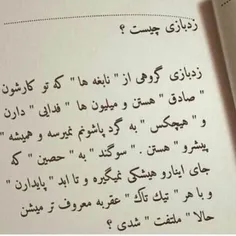 زدبازی چیست ؟
زدبازی گروهی از " نابغه ها " که تو کارشون
" صادق " هستن و میلیون ها " فدایی " دارن
و " هیچکس " به گرد پاشونم نمیرسه و همیشه "
پیشرو " هستن . " سوگند " به " حصین " که
جای اینارو هیشکی نمیگیره و تا ابد " پایدارن "
و با هر " تیک تاک " عقربه معروف تر میشن
حالا " ملتفت " شدی ؟